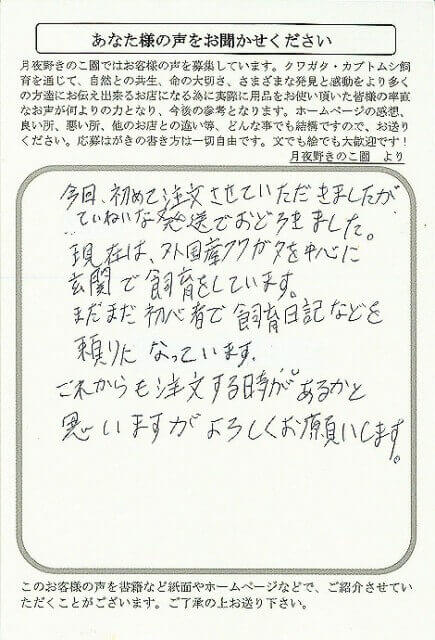 あなた様の声をお聞かせください
月夜野きのこ園ではお客様の声を募集しています。クワガタ・カブトムシ飼
育を通じて、自然との共生、命の大切さ、さまざまな発見と感動をより多く
の方達にお伝え出来るお店になる為に実際に用品をお使い頂いた皆様の率直
なお声が何よりの力となり、今後の参考となります。ホームページの感想、
良い所、悪い所、他のお店との違い等、どんな事でも結構ですので、お送り
ください。応募はがきの書き方は一切自由です。文でも絵でも大歓迎です！
月夜野きのこ園 より
今回、初めて注文させていただきましたが
ていねいな発送でおどろきました。
現在は、外国産クワガタを中心に
玄関で飼育をしています。
まだまだ初心者で飼育日記などを
頼りになっています。
これからも注文する時があるかと
思いますがよろしくお願いします。
このお客様の声を書籍など紙面やホームページなどで、ご紹介させてい
ただくことがございます。ご了承の上お送り下さい。